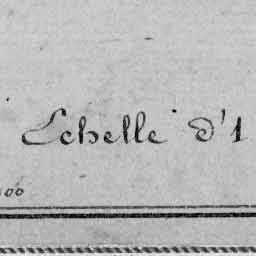 Echelle d'1
100